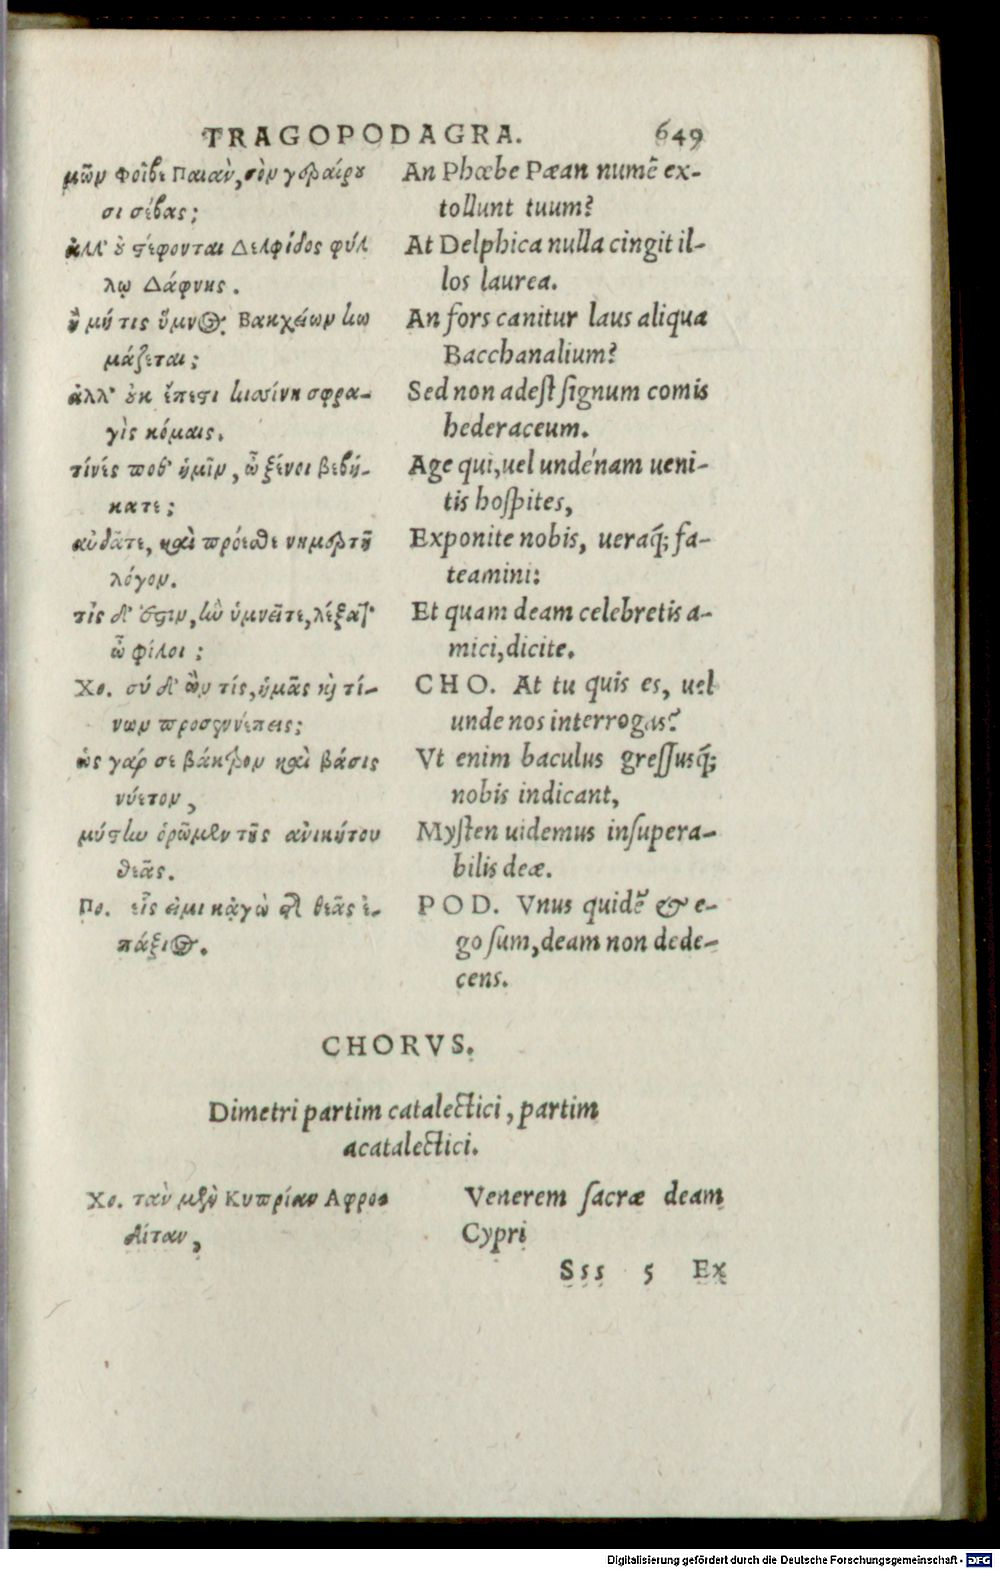 TRAGOPODAGRA. 649
μῶν Φοῖβε Παιὰν, σὸν γεραίρου
σι σέβας;
ἀλλ' οὐ στέφονται Δελφίδος φύλ
λῳ Δάφνης.
ἢ μή τις ὕμνος Βακχείων κω
μάζεται;
ἀλλ' οὐκ ἔπεστι κισσίνη σφρα-
γὶς κόμαις.
τίνές ποθ' ἡμῖν, ὦ ξένοι βεβή-
κατε;
αὐδᾶτε, καὶ πρόεσθε νημερτῆ
λόγον.
τίς δ' ἔστιν, ἣν ὑμνεῖτε, λέξατ'
ὦ φίλοι;
Χο. σύ δ' ὢν τίς, ἡμᾶς καὶ τί-
νων προσεννέπεις;
ὡς γάρ σε βάκτρον καὶ βάσις
νύετον,
μύστην ὁρῶμεν τῆς ἀνικήτου
θεᾶς.
Πο. εἷς εἰμι κἀγὼ τῆς θεᾶς ἐ-
πάξιος.
An Phœbe Pæan numẽ ex-
tollunt tuum?
At Delphica nulla cingit il-
los laurea.
An fors canitur laus aliqua
Bacchanalium?
Sed non adest signum comis
hederaceum.
Age qui, uel undénam ueni-
tis hospites,
Exponite nobis, ueraq́; fa-
teamini:
Et quam deam celebretis a-
mici, dicite.
CHO. At tu quis es, uel
unde nos interrogas?
Vt enim baculus gressusq́;
nobis indicant,
Mysten uidemus insupera-
bilis deæ.
POD. Vnus quidẽ & e-
go sum, deam non dede-
cens.
CHORVS.
Dimetri partim catalectici, partim
acatalectici.
Χο. ταὺ μὲν Κυπρίαν Αφρο-
δίταν,
Venerem sacræ deam
Cypri
Sss 5 Ex
Digitalisierung gefördert durch die Deutsche Forschungsgemeinschaft - DFG